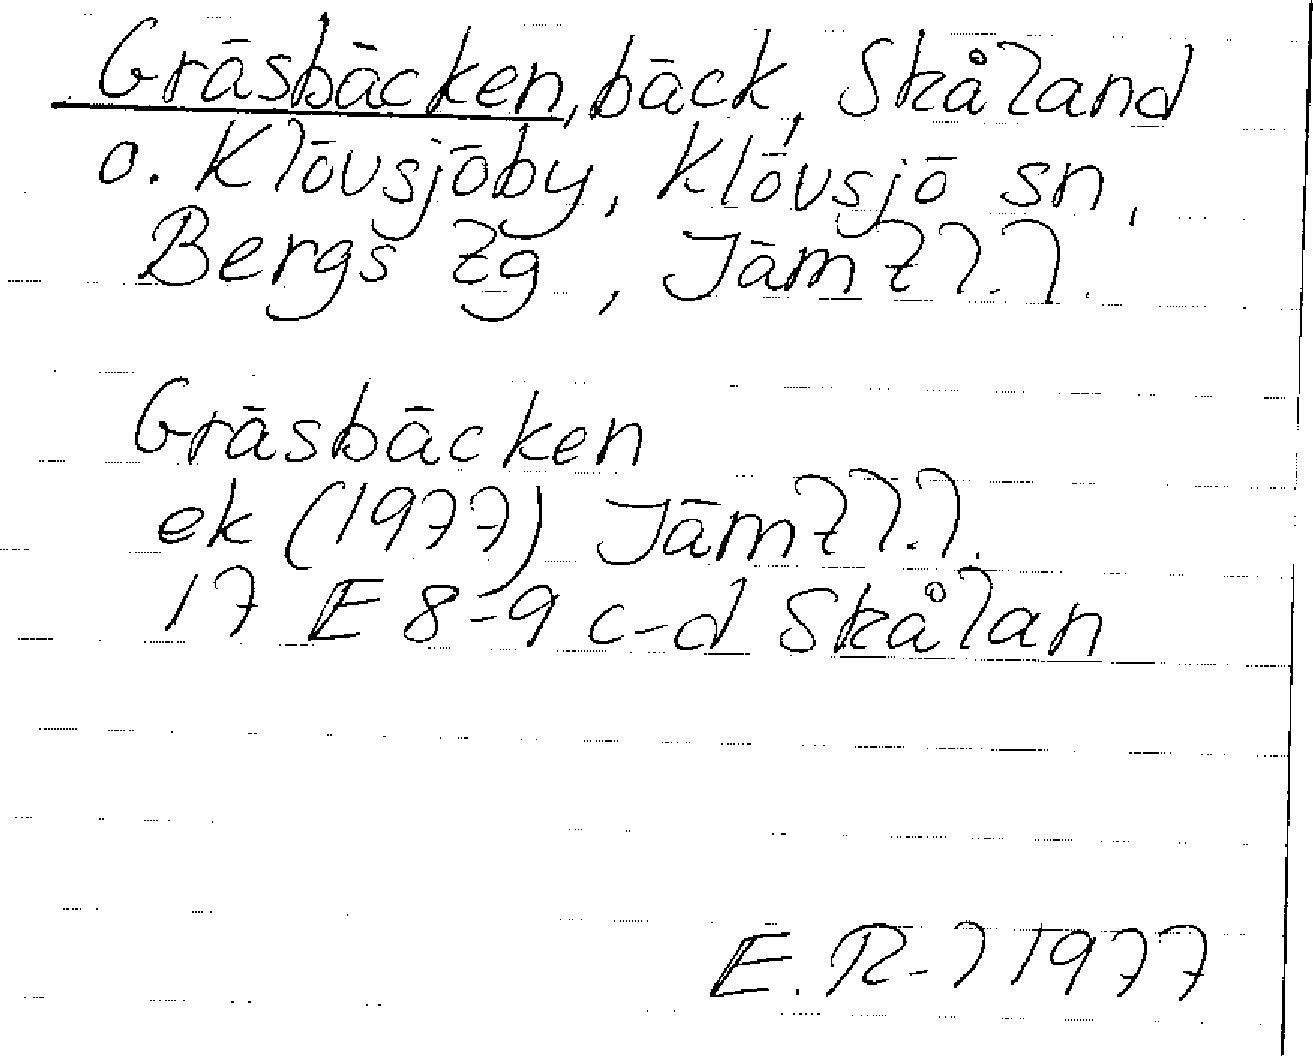 Gräsbäcken, bäck, Skåland
o. Klövsjöby, Klövsjö sn,
Bergs tg, Jämtl. l.
Gräsbäcken
ek (1977) Jämtl. l.
17 E 8-9 c-d Skålan
E. R-l 1977